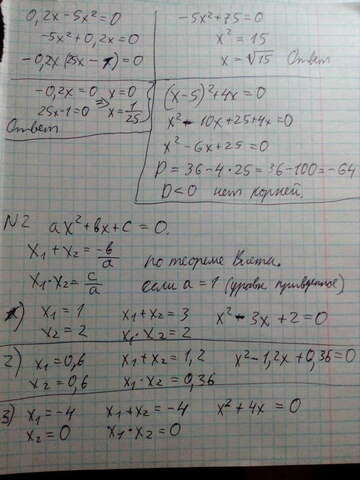 0,2x-5x²=0
-5x²+0,2x=0
-0,2x(25x-1)=0
-0,2x=0 x=0
25x-1=0 ⇒ x=1/25
Ответ
-5x²+75=0
x²=15
x=√15 Ответ
(x-5)²+4x=0
x²-10x+25+4x=0
x²-6x+25=0
D=36-4·25=36-100=-64
D<0 нет корней.
N2 ax²+bx+c=0.
x₁+x₂=-b/a по теореме Виета.
x₁·x₂=c/a если a=1 (уравне приведенное)
1) x₁=1 x₁+x₂=3 x²-3x+2=0
x₂=2 x₁·x₂=2
2) x₁=0,6 x₁+x₂=1,2 x²-1,2x+0,36=0
x₂=0,6 x₁·x₂=0,36
3) x₁=-4 x₁+x₂=-4 x²+4x=0
x₂=0 x₁·x₂=0